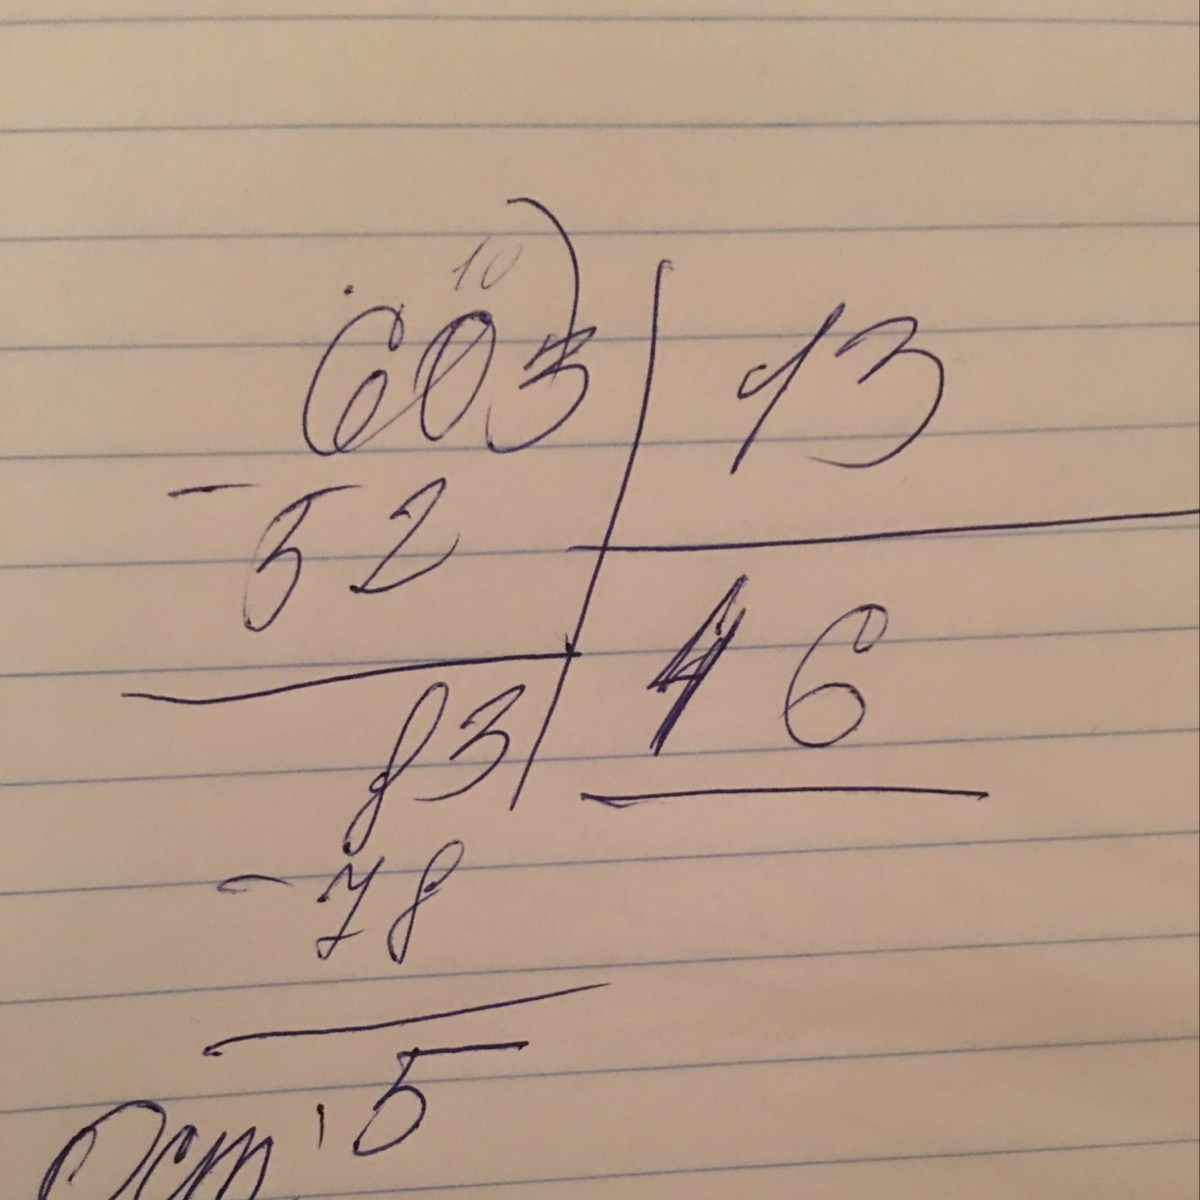 10
603 | 13
- 52
46
83
- 78
5
Ост